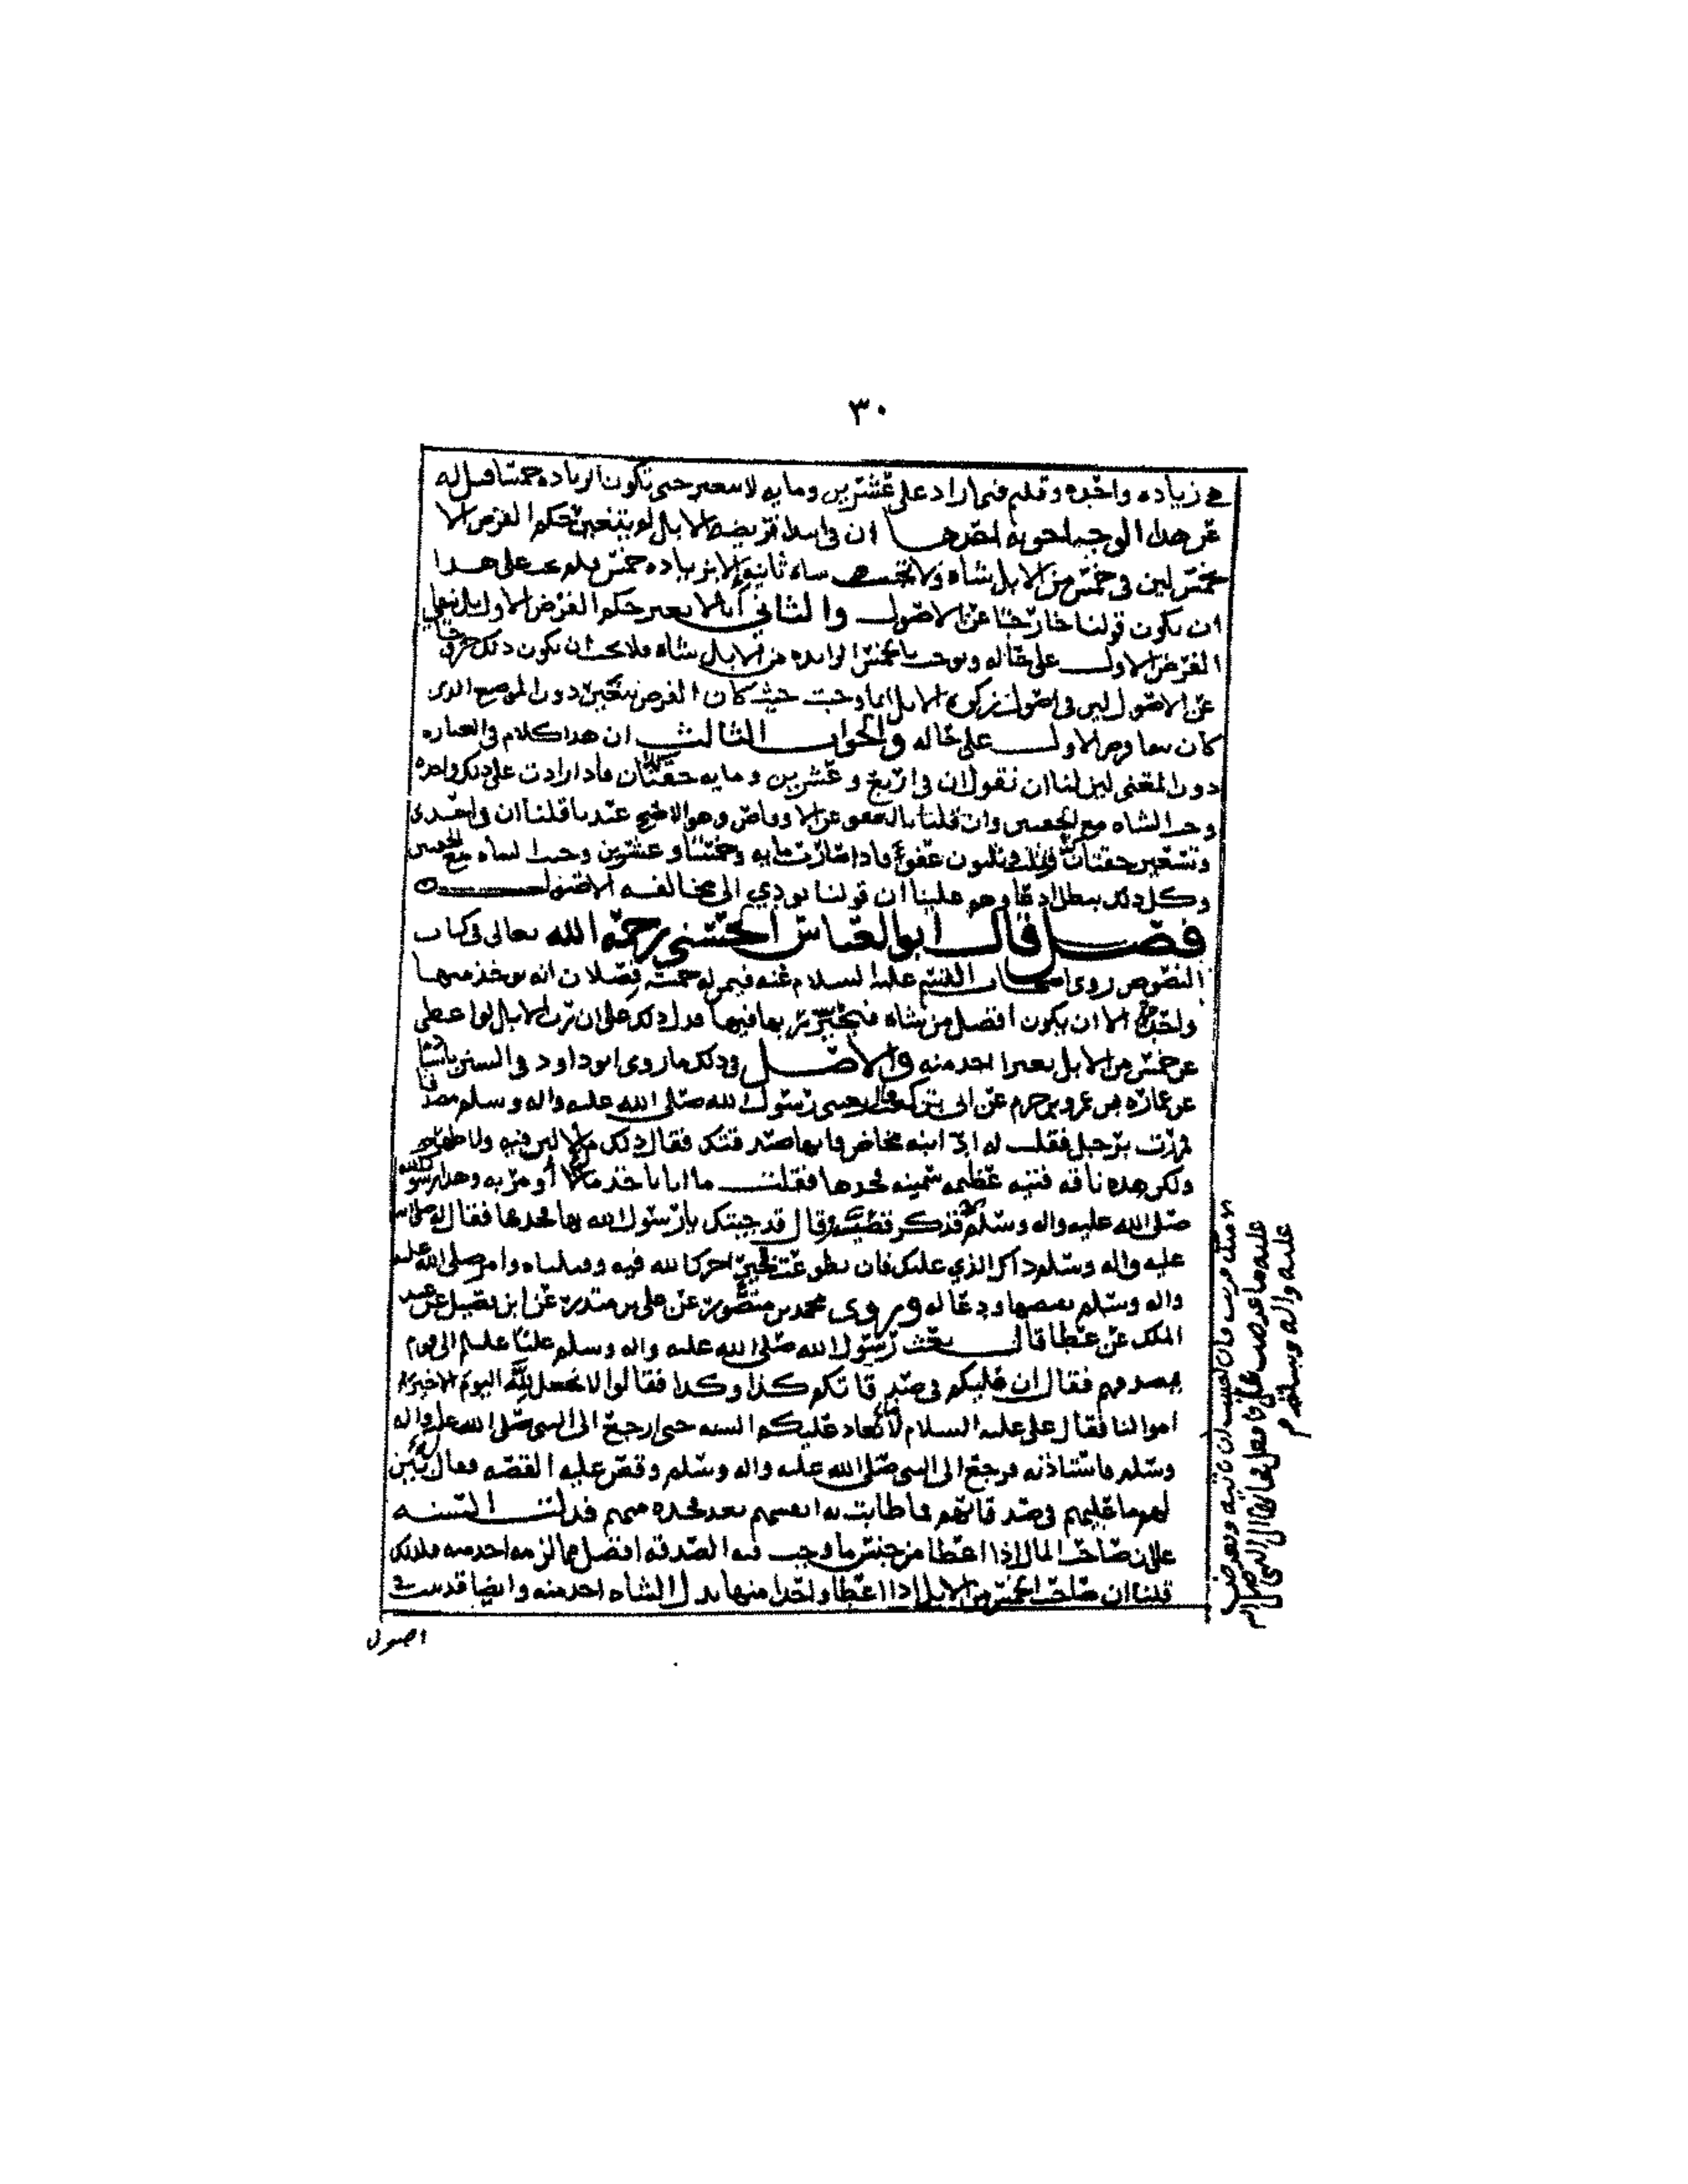 ٣٠
هي زياده واحده وقلتم فيما زاد على عشرين ومايه لا يتغير حتى تكون الزياده خمسا قيل له
عن هذا الوجه اجوبه احدها ان في ابتدا فريضه الابل لم يتغير حكم الفرض الا
بخمس ليس في خمس من الابل شاه ولا تجب شاه ثانيه الا بزياده خمس فلم يجب على هذا
ان يكون قولنا خارجا عن الاصول والثاني انا لا نغير حكم الفرض الاول بل نبقي
الفرض الاول على حاله ونوجب بالخمس الزايده من الابل شاه فلا يجب ان يكون ذلك خارجا
عن الاصول ليس في اصول زكوه الابل انما وجبت حيث كان الفرض يتغير دون الموضع الذي
كان فيها فرض الاول على حاله والجواب الثالث ان هذا كلام في العباره
دون المعنى ليس لنا ان نقول ان في اربع وعشرين ومايه حقتان فاذا زادت على ذلك واحده
وجب الشاه مع الحقتين وان قلنا بالعفو عن الاوقاص وهو الاصح عندنا قلنا ان في احدى
وتسعين حقتان وثلث وثلثون عفو فاذا صارت مايه وخمسا وعشرين وجب الشاه مع الحقتين
وكل ذلك يبطل ادعاوهم علينا ان قولنا يودي الى مخالفه الاصول
فصل قال ابو العباس الحسني رحمه الله تعالى في كتاب
النصوص روى اصحاب القسم عليه السلام عنه فيمن له خمسة فصلان انه يوخذ منها
واحد الا ان يكون افضل من شاه فيخير ربها فيها فدل ذلك على ان رب الابل لو اعطى
عن خمس من الابل بعيرا اخذ منه والاصل في ذلك ما روى ابو داود في السنن باسناده
عن عماره بن عمرو بن حزم عن ابي بن كعب قال بعثني رسول الله صلى الله عليه واله وسلم مصدقا
فمررت برجل فقلت له ادّ ابنه مخاض فانها صدقتك فقال ذلك ما لا لبن فيه ولا ظهر
ولكن هذه ناقه فتيه عظيمه سمينه فخذها فقلت ما انا باخذ ما لا اومر به وهذا رسول الله
صلى الله عليه واله وسلم فذكر قصته وقال قد جيتك يا رسول الله بها فخذها فقال له صلى الله
عليه واله وسلم ذاك الذي عليك فان تطوعت بخير اجرك الله فيه وقبلناه وامر صلى الله عليه
واله وسلم بقبضها ودعا له وروى محمد بن منصور عن علي بن منذر عن ابن فضيل عن عبد
الملك عن عطا قال بعث رسول الله صلى الله عليه واله وسلم عليا عليلم الى قوم
يصدقهم فقال ان عليكم في صدقاتكم كذا وكذا فقالوا لا نجعل لله اليوم الا خير
اموالنا فقال علي عليه السلام ما عليكم السنه حتى ارجع الى النبي صلى الله عليه واله
وسلم فاستاذنه فرجع الى النبي صلى الله عليه واله وسلم وقص عليه القصه فقال بين
لهم ما عليهم في صدقاتهم فما طابت به انفسهم بعد فخذه منهم فدلت السنه
على ان صاحب المال اذا اعطا من جنس ما وجب فيه الصدقه افضل مما لزمه اخذ منه فلذلك
قلنا ان صاحب الخمس من الابل اذا اعطا واحدا منها بدل الشاه اخذ منه وايضا قد ثبت في
اصول
منك قريب فان احببت ان تاتيه وتعرض
عليه ما عرضت علي فافعل قال النبي صلى الله
عليه واله وسلم